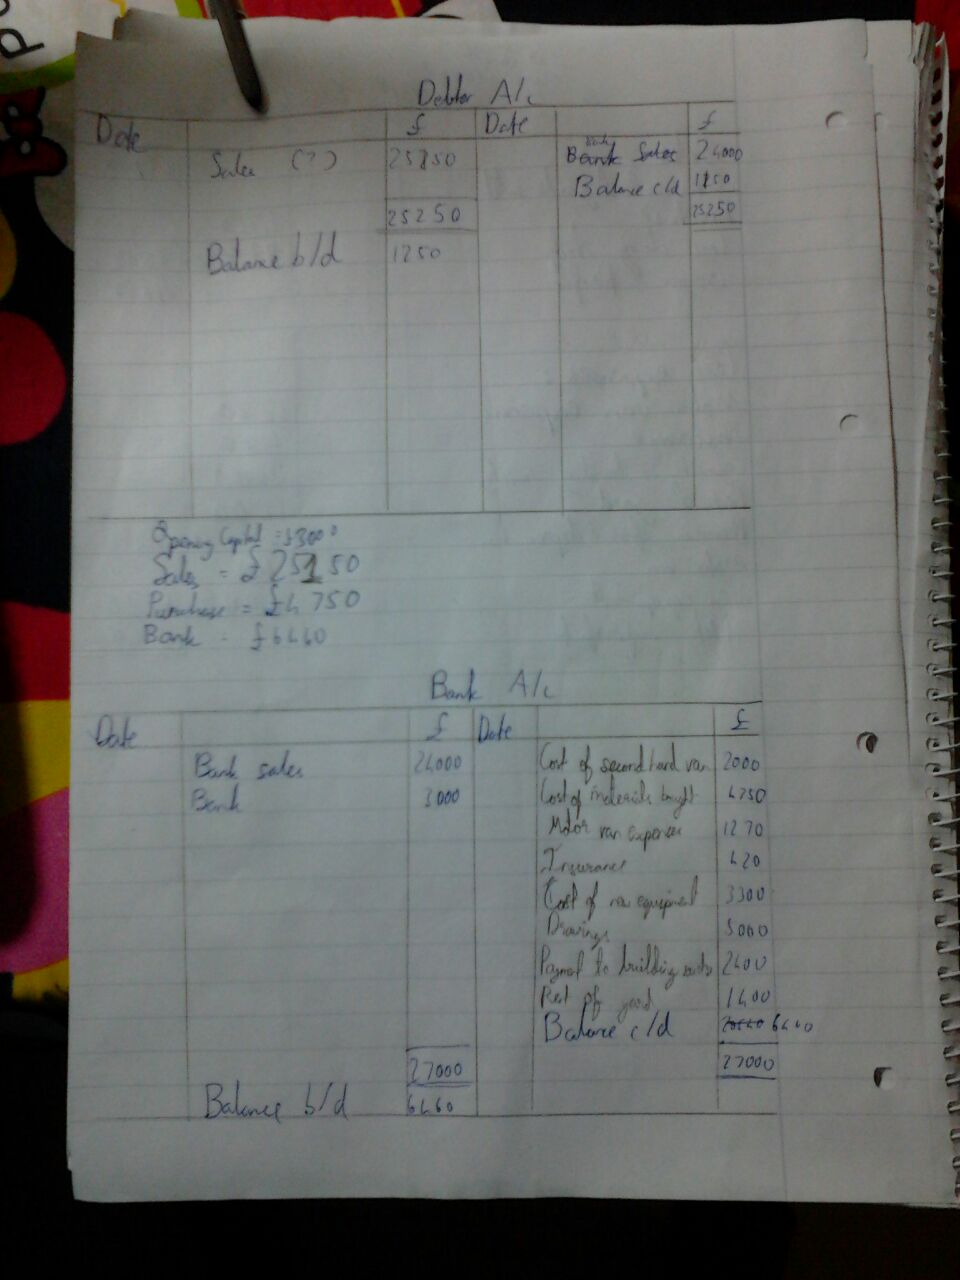 Debtor A/c
Date £ Date £
Sales (?) 25150 Bank Sales 24000
Balance c/d 1150
25250 25250
Balance b/d 1250
Opening Capital = £3000
Sales = £25150
Purchase = £4750
Bank = £6460
Bank A/c
Date £ Date £
Bank sales 24000 Cost of second hand van 2000
Bank 3000 Cost of materials bought 4750
Motor van expenses 1270
Insurance 420
Cost of new equipment 3300
Drawings 5000
to building 2400
Rent of yard 1400
Balance c/d 20540 6460
27000 27000
Balance b/d 6460